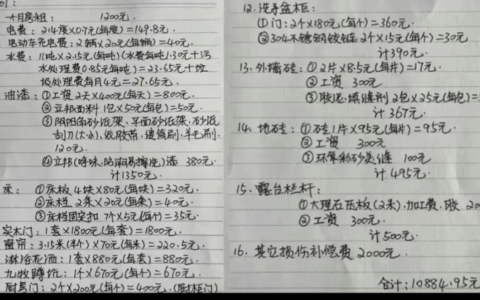 十月房租: 1200元.
电费: 214度×0.7元(每度)=149.8元.
电动车充电费: 2辆×20元(每辆)=40元.
水费: 11吨×2.15元(每吨)(水费每吨1.30元+污
水处理费0.85元每吨)=23.65元+垃
圾处理费每月4元=27.65元.
油漆: ①工资2天×400元(每天)=800元.
②立邦面料1包×50元(每包)=50元.
③阴阳角砂纸架、平面砂纸架、砂纸
刮刀(大小),收胶带、
120元.
④立邦 漆 380元.
计1350元.
床: ①床板4块×80元(每块)=320元.
②床档2条×20元(每条)=40元.
③床档固定扣7个×5元(每个)=35元.
实木门: 1套×1800元(每套)=1800元.
窗帘: 3.15米×70元(每米)=220.5元.
淋浴花洒: 1套×880元(每套)=880元.
九牧蹲坑: 1个×670元(每个)=670元.
厨房门: 2个×200元(每个)=400元.
12.洗手盆柜:
①门: 2个×180元(每个)=360元.
②304不锈钢铰链2个×15元(每个)=30元
计390元.
13.外墙砖: ①2片×8.5元(每片)=17元.
②工资 300元.
③胶泥、填缝剂2包×25元(每包)=
计367元.
14.地砖: ①砖1片×95元(每片)=95元.
②工资 300元
③环氧彩砂美缝 100元
计495元.
15.露台栏杆:
①大理石压板(2米),加工费, 200
②工资 300元.
计500元.
16.其它损伤补偿费2000元.
合计: 10884.95元